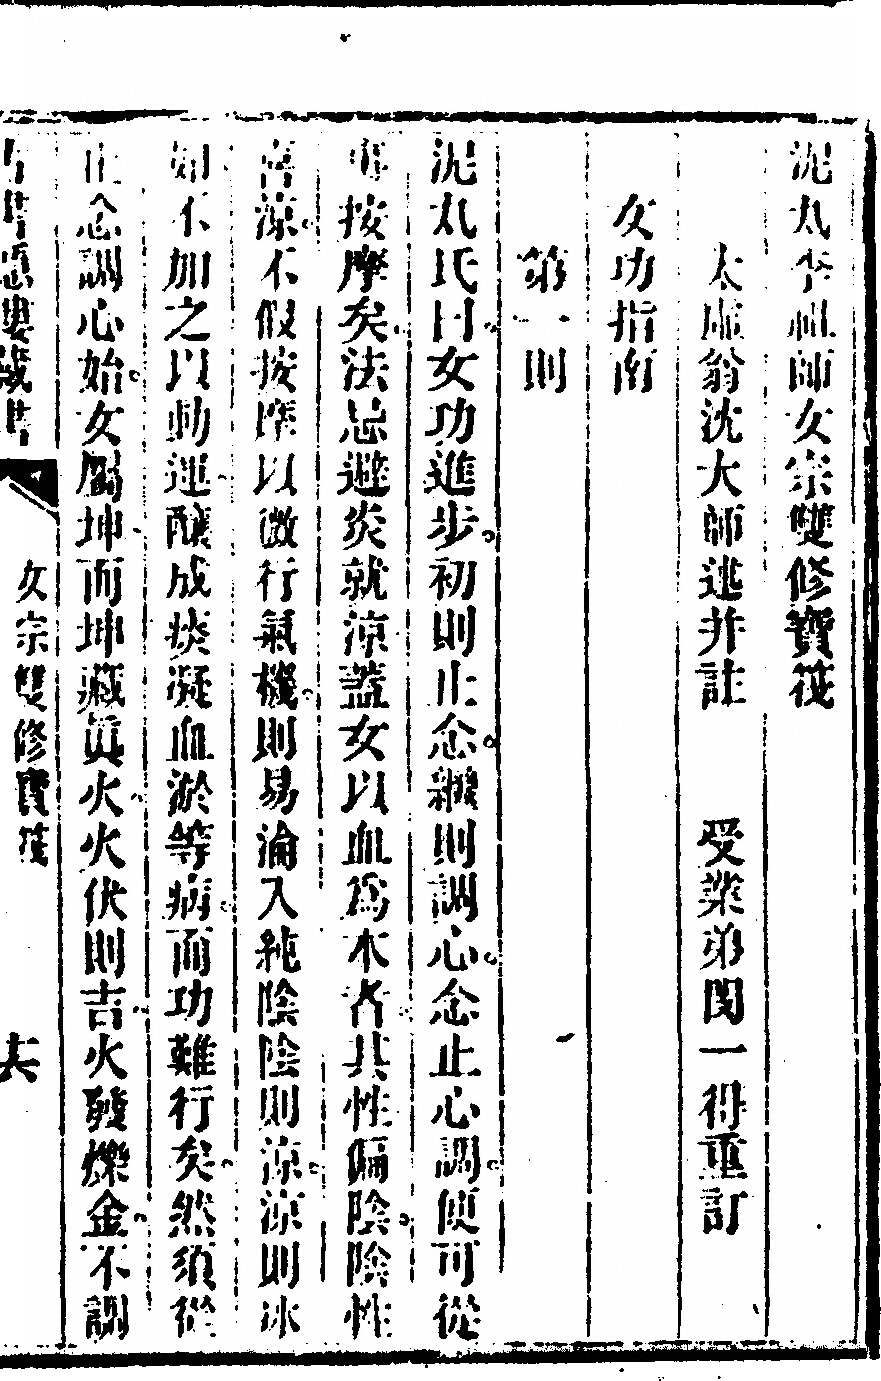 泥丸李祖師女宗雙修寶筏
太虛翁沈大師述并註 受業弟閔一得重訂
女功指南
第一則
泥丸氏曰女功進步初則止念繼則調心念止心調便可從
事按摩矣法忌避炎就涼蓋女以血爲本者其性偏陰陰性
喜涼不假按摩以微行氣機則易淪入純陰陰則涼涼則冰
如不加之以動運釀成痰凝血淤等病而功難行矣然須從
止念調心始女屬坤而坤藏眞火火伏則吉火發爍金不調
古書隱樓藏書
女宗雙修寶筏